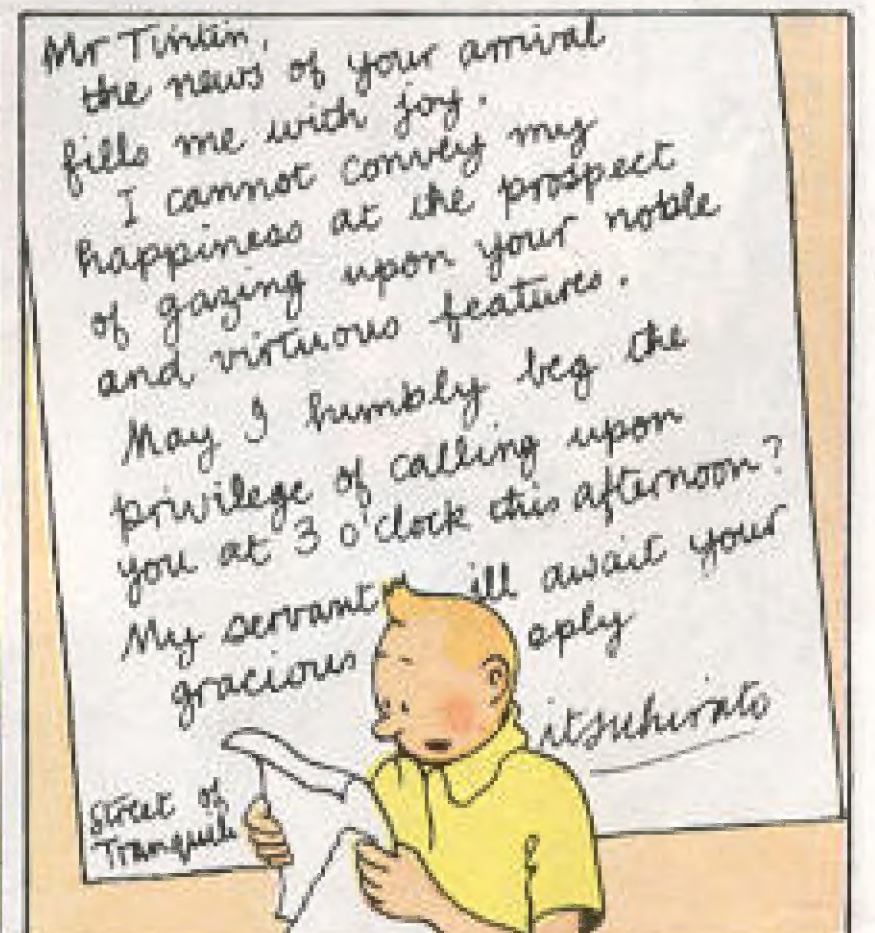 Mr Tintin,
the news of your arrival
fills me with joy.
I cannot convey my
happiness at the prospect
of gazing upon your noble
and virtuous features.
May I humbly beg the
privilege of calling upon
you at 3 o'clock this afternoon?
My servant ill await your
gracious eply
itsuhirato
Street of
Tranquil